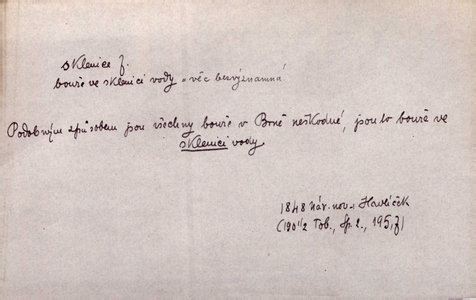 sklenice f.
bouře ve sklenici vody = věc bezvýznamná
Podobným způsobem jsou všechny bouře v Brně neškodné, jsou to bouře ve
sklenici vody
1848 Nár. nov. Havlíček
(1901/2 Tob., Sp. 2., 195,)